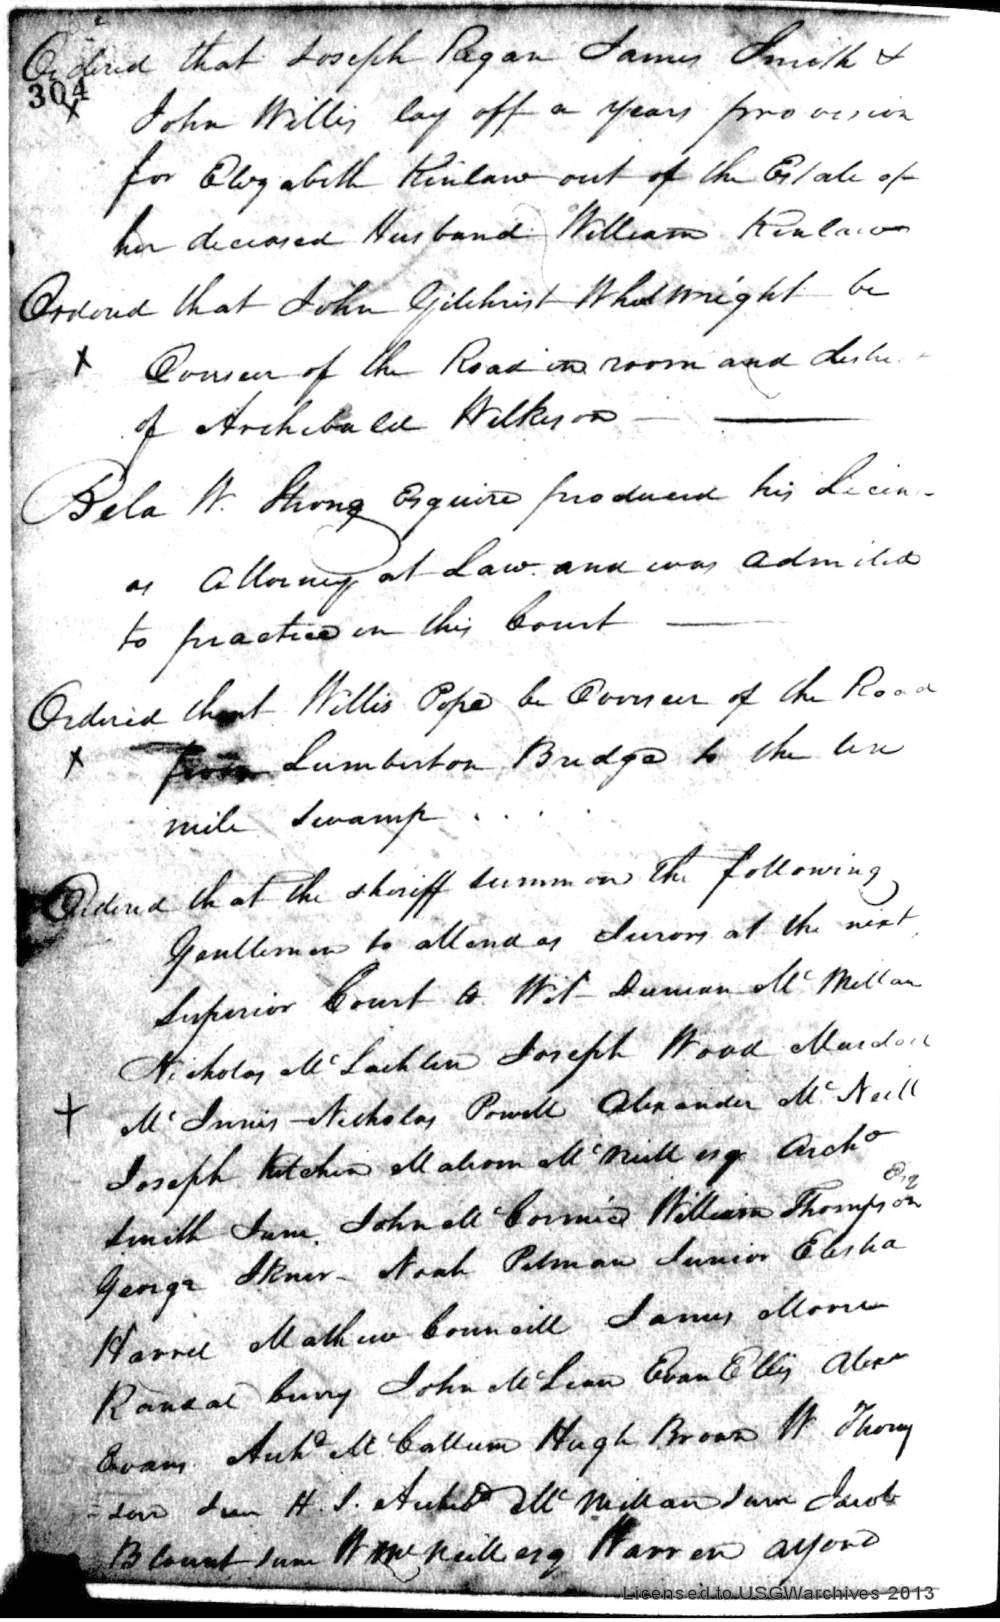 Ordered that Joseph Regan James Smith &
304
x
John Willis lay off a years provision
for Elizabeth Kinlaw out of the Estate of
her deceased Husband William Kinlaw
Ordered that John Gilchrist Wheelwright be
x
Overseer of the Road in room and
of Archibald Wilkeson
Bela W. Strong Esquire produced his Licen-
as Attorney at Law and was admitted
to practice in this Court
Ordered that Willis Pope be Overseer of the Road
x
from Lumberton Bridge to the ten
mile Swamp . . . .
Ordered that the sheriff summon the following
Gentlemen to attend as Jurors at the next
Superior Court to Wit Duncan McMillan
Nicholas McLachlen Joseph Wood Murdoch
+
McInnis Nicholas Powell Alexander McNeill
Joseph Kitchen Malcom McNeill esq Archd
Smith Junr. John McCormic William Thompson Esq
George Ikner Noah Pitman Junior Elisha
Harrel Mathew Councill James Moore
Randal Curry John McLean Evan Ellis Alexr
Evans Archd McCallum Hugh Brown W Thomp
=son Jun H. S. Archd McMillan Junr Jacob
Blount Junr W McNeill esq Warren Alford
Licensed to USGWarchives 2013